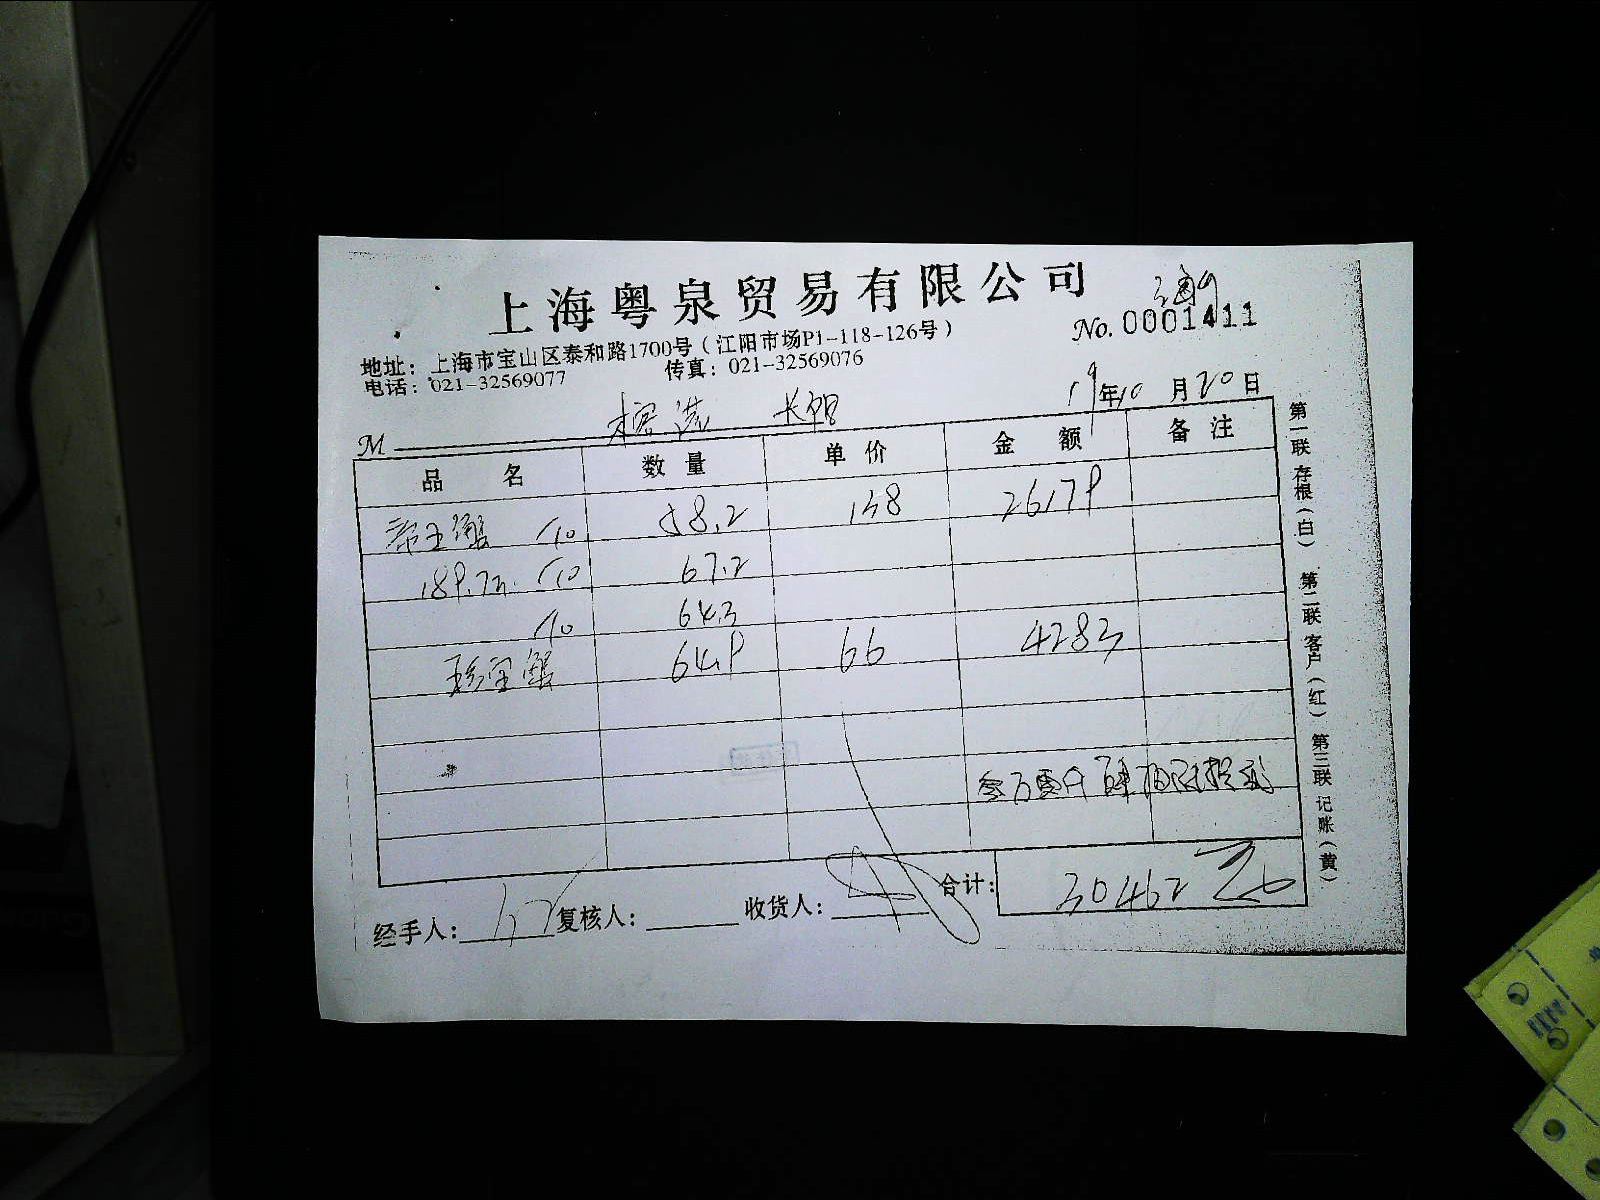 上海粤泉贸易有限公司
No. 0001411
地址：上海市宝山区泰和路1700号（江阳市场P1-118-126号）
电话：021-32569077 传真：021-32569076
19年10月20日
M
品名 数量 单价 金额 备注
帝王蟹 10 58.2 138 26179
189.7 10 67.2
10 64.3
珍宝蟹 64.9 66 4283
合计： 30462
经手人： 复核人： 收货人：
第一联 存根（白） 第二联 客户（红） 第三联 记账（黄）